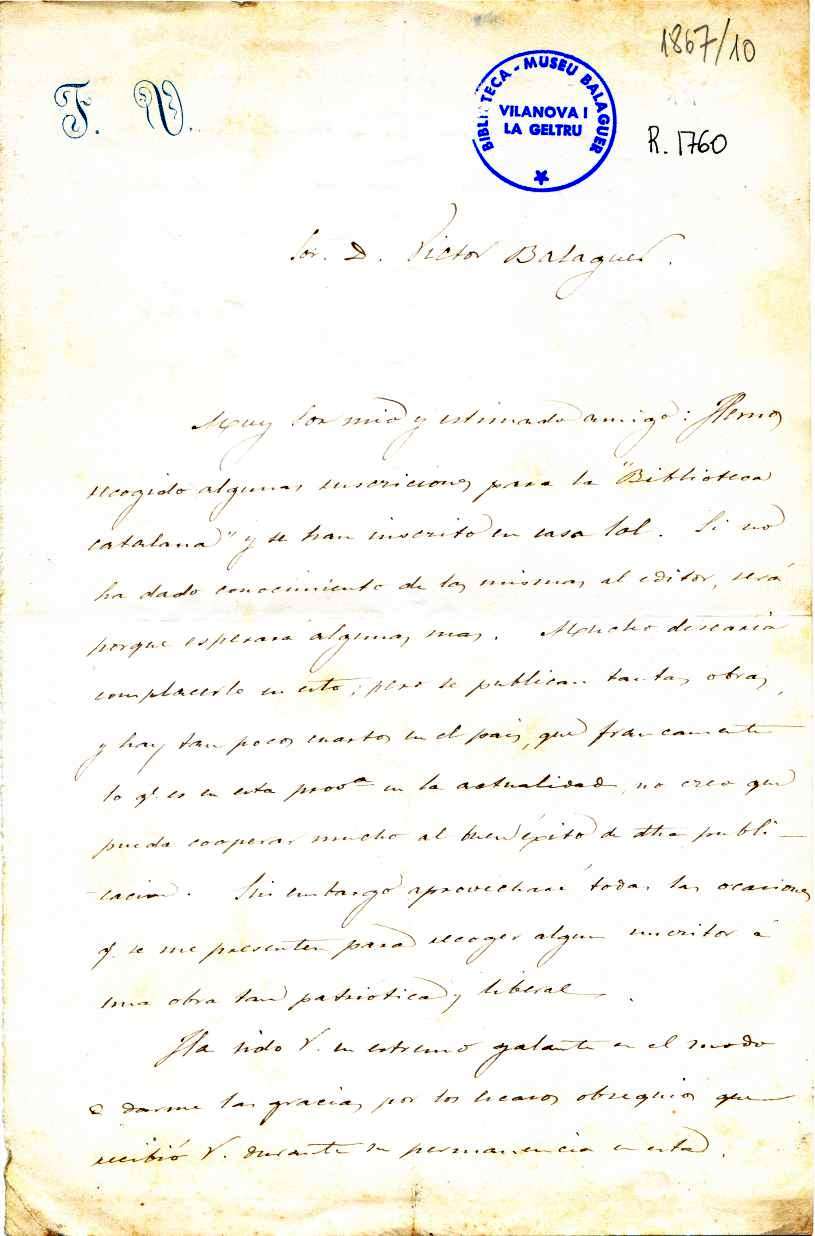 1867/10
F. V.
BIBLIOTECA - MUSEU BALAGUER
VILANOVA I
LA GELTRU
R. 1760
Sor. D. Victor Balaguer.
Muy Sor mio y estimado amigo: Hemos
recogido algunas suscriciones para la "Biblioteca
catalana" y se han inscrito en casa Sol. Si no
ha dado conocimiento de las mismas al editor, será
porque esperara algunas mas. Mucho desearia
complacerle en esto; pero se publican tantas obras,
y hay tan pocos cuartos en el pais, que francamente
lo q.e es en esta prov.a en la actualidad, no creo que
pueda cooperar mucho al buen éxito de dha publi-
cacion. Sin embargo aprovecharé todas las ocasiones
q. se me presenten para recoger algun suscritor á
una obra tan patriotica y liberal.
Ha sido V. en estremo galante en el modo
de darme las gracias por los escasos obsequios que
recibió V. durante su permanencia en esta.